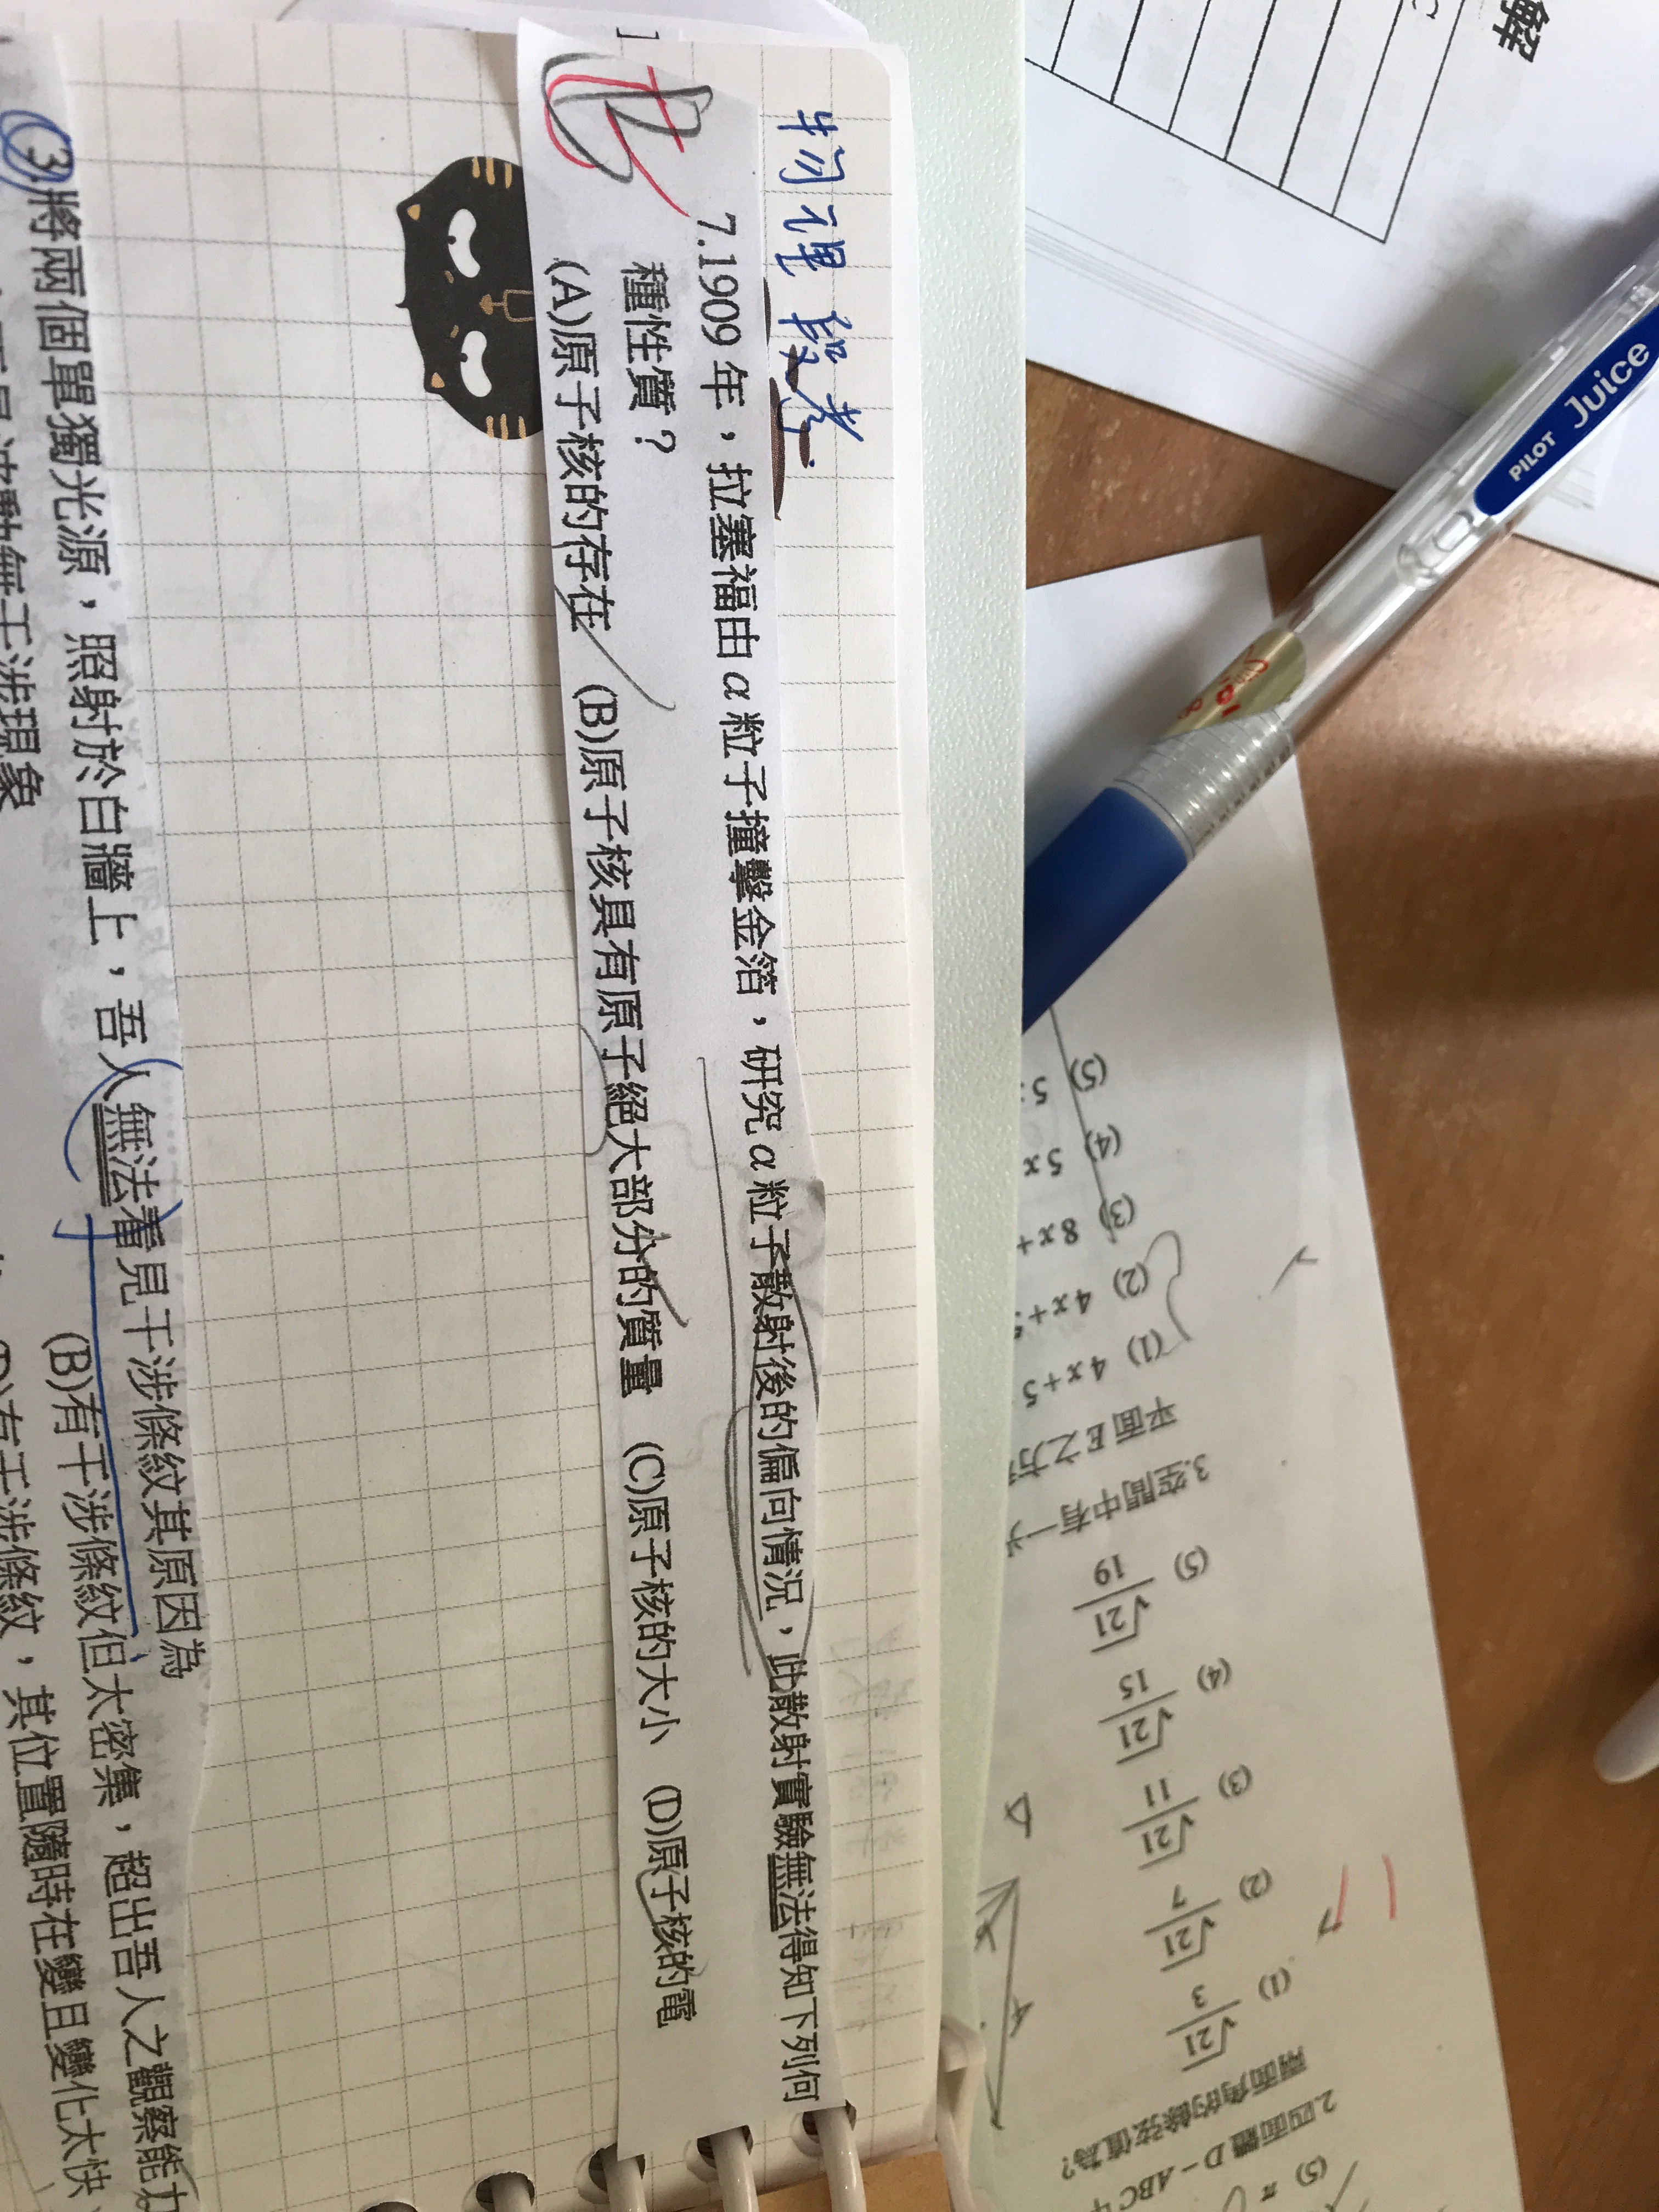 物理段考
7.1909 年，拉塞福由 α 粒子撞擊金箔，研究 α 粒子散射後的偏向情況，此散射實驗無法得知下列何
種性質？
(A)原子核的存在 (B)原子核具有原子絕大部分的質量 (C)原子核的大小 (D)原子核的電
(3)將兩個單獨光源，照射於白牆上，吾人無法看見干涉條紋其原因為
(B)有干涉條紋但太密集，超出吾人之觀察能力
有干涉條紋，其位置隨時在變且變化太快
波動無干涉現象
解
PILOT Juice
2.四面體 D－ABC
兩面角的餘弦值為?
(1) √21/3
(2) √21/7
(3) √21/11
(4) √21/15
(5) √21/19
3.空間中有一
平面 E 之方
(1) 4x+5
(2) 4x+5
(3) 8x+
(4) 5x
(5) 5